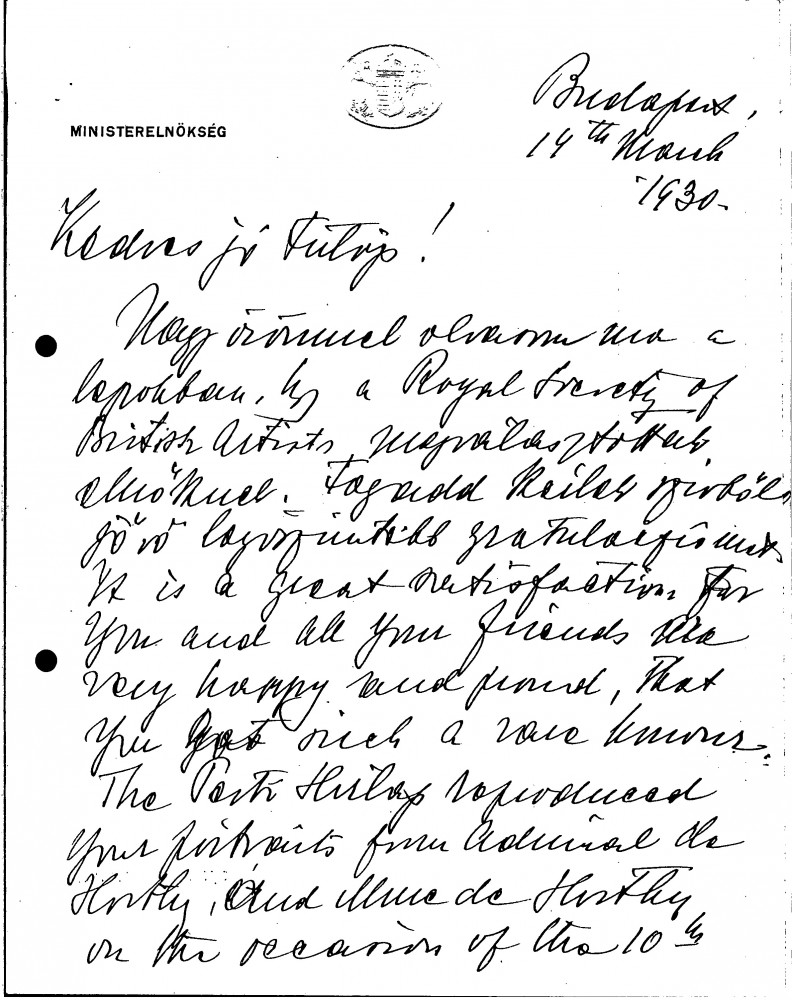 MINISTERELNÖKSÉG
Budapest,
14th March
1930.
Kedves jó Fülöp!
Nagy örömmel olvasom ma a
lapokban, hy a Royal Society of
British Artists megválasztottak
elnöknek. Fogadd szivből
jövő legőszintébb gratulacziómat.
It is a great satisfaction for
You and all your friends are
very happy and proud, that
you got such a rare honour.
The Pesti Hirlap reproduced
your portraits from Admiral de
Horthy, and Mme de Horthy
on the occasion of the 10th